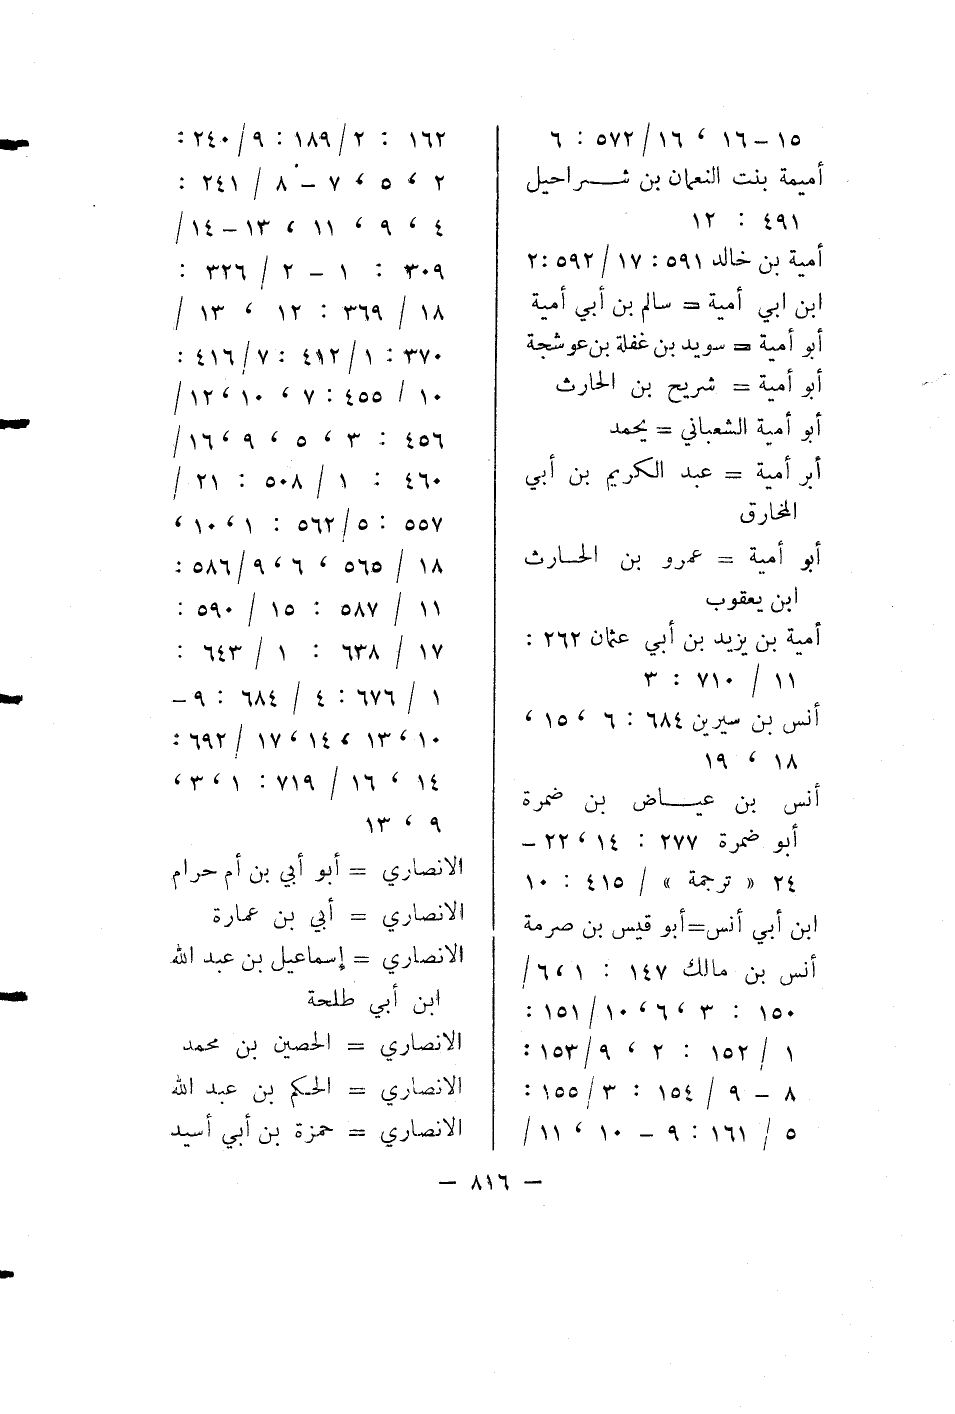 ١٥ – ١٦ ، ١٦ / ٥٧٢ : ٦
أميمة بنت النعمان بن شراحيل
٤٩١ : ١٢
أمية بن خالد ٥٩١ : ١٧ / ٥٩٢ : ٢
ابن ابي أمية = سالم بن أبي أمية
أبو أمية = سويد بن غفلة بن عوشجة
أبو أمية = شريح بن الحارث
أبو أمية الشعباني = يحمد
أبر أمية = عبد الكريم بن أبي
المخارق
أبو أمية = عمرو بن الحارث
ابن يعقوب
أمية بن يزيد بن أبي عثمان ٢٦٢ :
١١ / ٧١٠ : ٣
أنس بن سيرين ٦٨٤ : ٦ ، ١٥ ،
١٨ ، ١٩
أنس بن عياض بن ضمرة
أبو ضمرة ٢٧٧ : ١٤ ، ٢٢ –
٢٤ « ترجمة » / ٤١٥ : ١٠
ابن أبي أنس = أبو قيس بن صرمة
أنس بن مالك ١٤٧ : ١ ، ٦ /
١٥٠ : ٣ ، ٦ ، ١٠ / ١٥١ :
١ / ١٥٢ : ٢ ، ٩ / ١٥٣ :
٨ – ٩ / ١٥٤ : ٣ / ١٥٥ :
٥ / ١٦١ : ٩ – ١٠ ، ١١ /
١٦٢ : ٢ / ١٨٩ : ٩ / ٢٤٠ :
٢ ، ٥ ، ٧ – ٨ / ٢٤١ :
٤ ، ٩ ، ١١ ، ١٣ – ١٤ /
٣٠٩ : ١ – ٢ / ٣٢٦ :
١٨ / ٣٦٩ : ١٢ ، ١٣ /
٣٧٠ : ١ / ٤١٢ : ٧ / ٤١٦ :
١٠ / ٤٥٥ : ٧ ، ١٠ ، ١٢ /
٤٥٦ : ٣ ، ٥ ، ٩ ، ١٦ /
٤٦٠ : ١ / ٥٠٨ : ٢١ /
٥٥٧ : ٥ / ٥٦٢ : ١ ، ١٠ ،
١٨ / ٥٦٥ ، ٦ ، ٩ / ٥٨٦ :
١١ / ٥٨٧ : ١٥ / ٥٩٠ :
١٧ / ٦٣٨ : ١ / ٦٤٣ :
١ / ٦٧٦ : ٤ / ٦٨٤ : ٩ –
١٠ ، ١٣ ، ١٤ ، ١٧ / ٦٩٢ :
١٤ ، ١٦ / ٧١٩ : ١ ، ٣ ،
٩ ، ١٣
الانصاري = أبو أبي بن أم حرام
الانصاري = أبي بن عمارة
الانصاري = إسماعيل بن عبد الله
ابن أبي طلحة
الانصاري = الحصين بن محمد
الانصاري = الحكم بن عبد الله
الانصاري = حمزة بن أبي أسيد
– ٨١٦ –